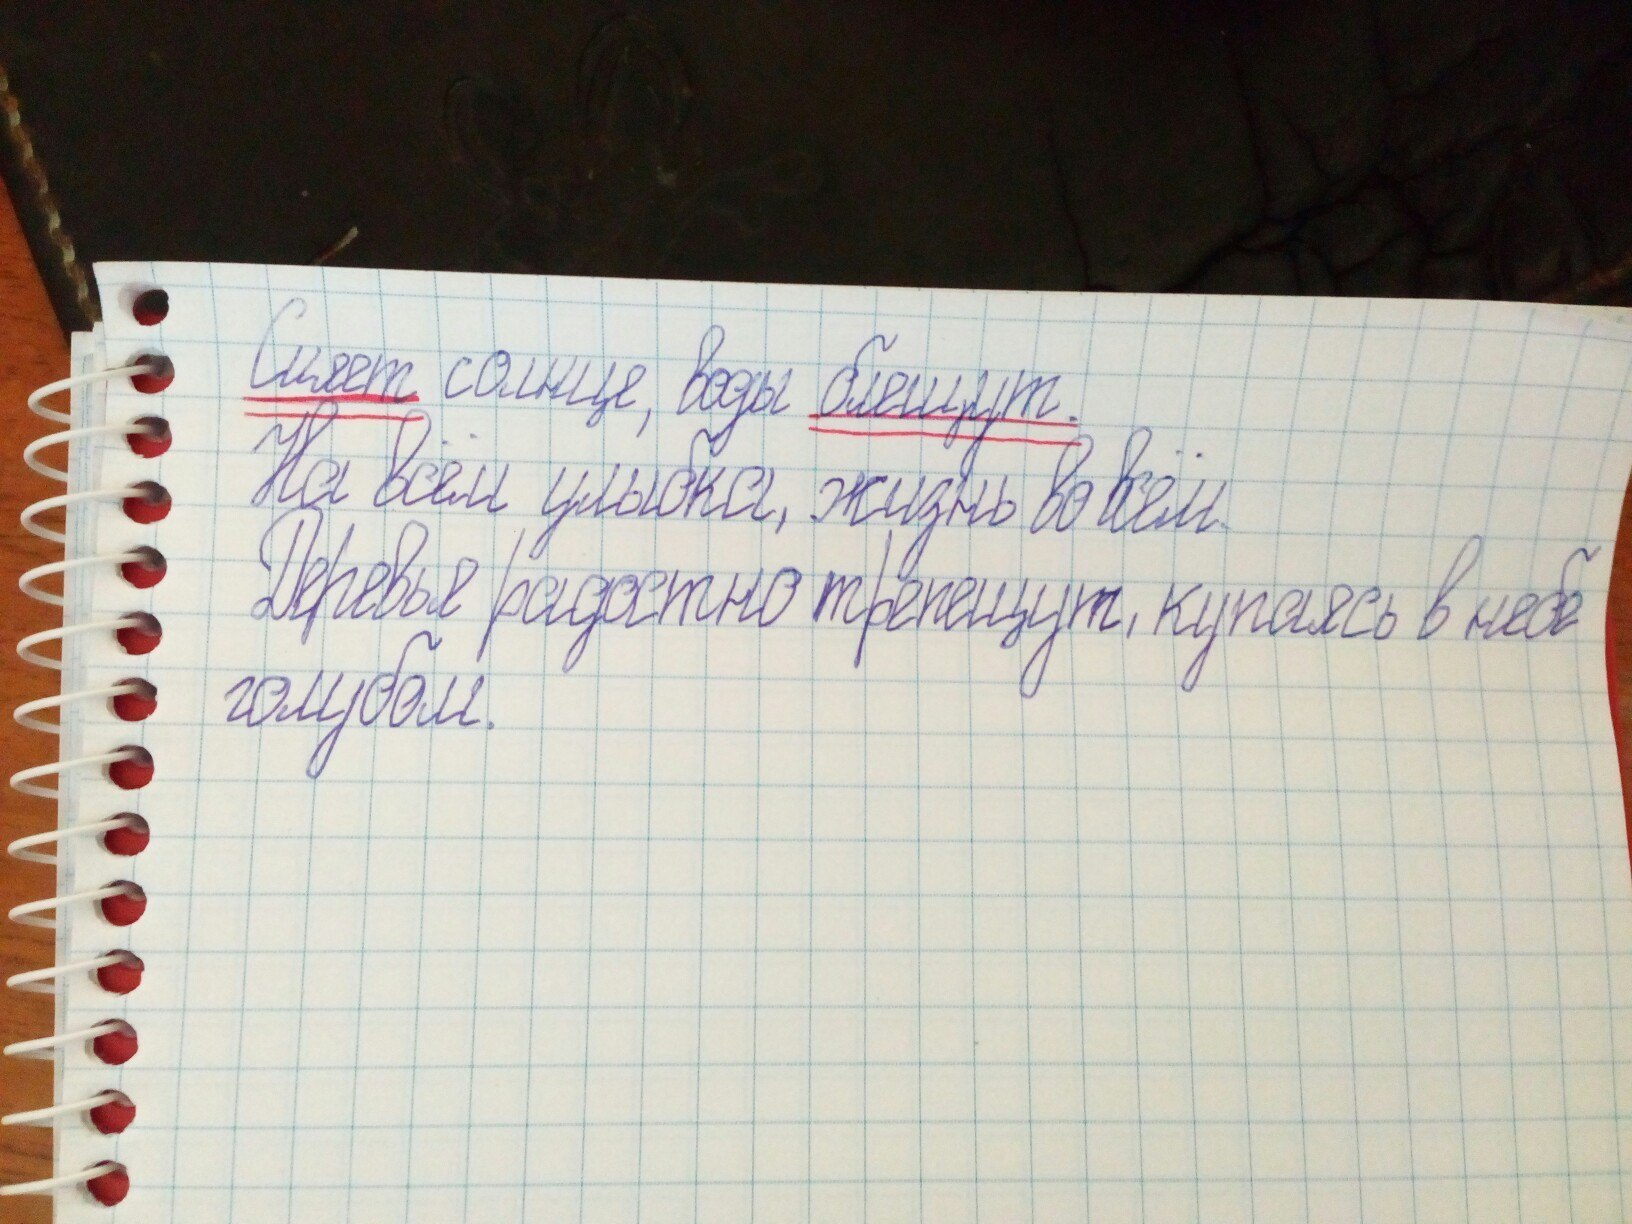 Сияет солнце, воды блещут.
На всём улыбка, жизнь во всём.
Деревья радостно трепещут, купаясь в небе
голубом.